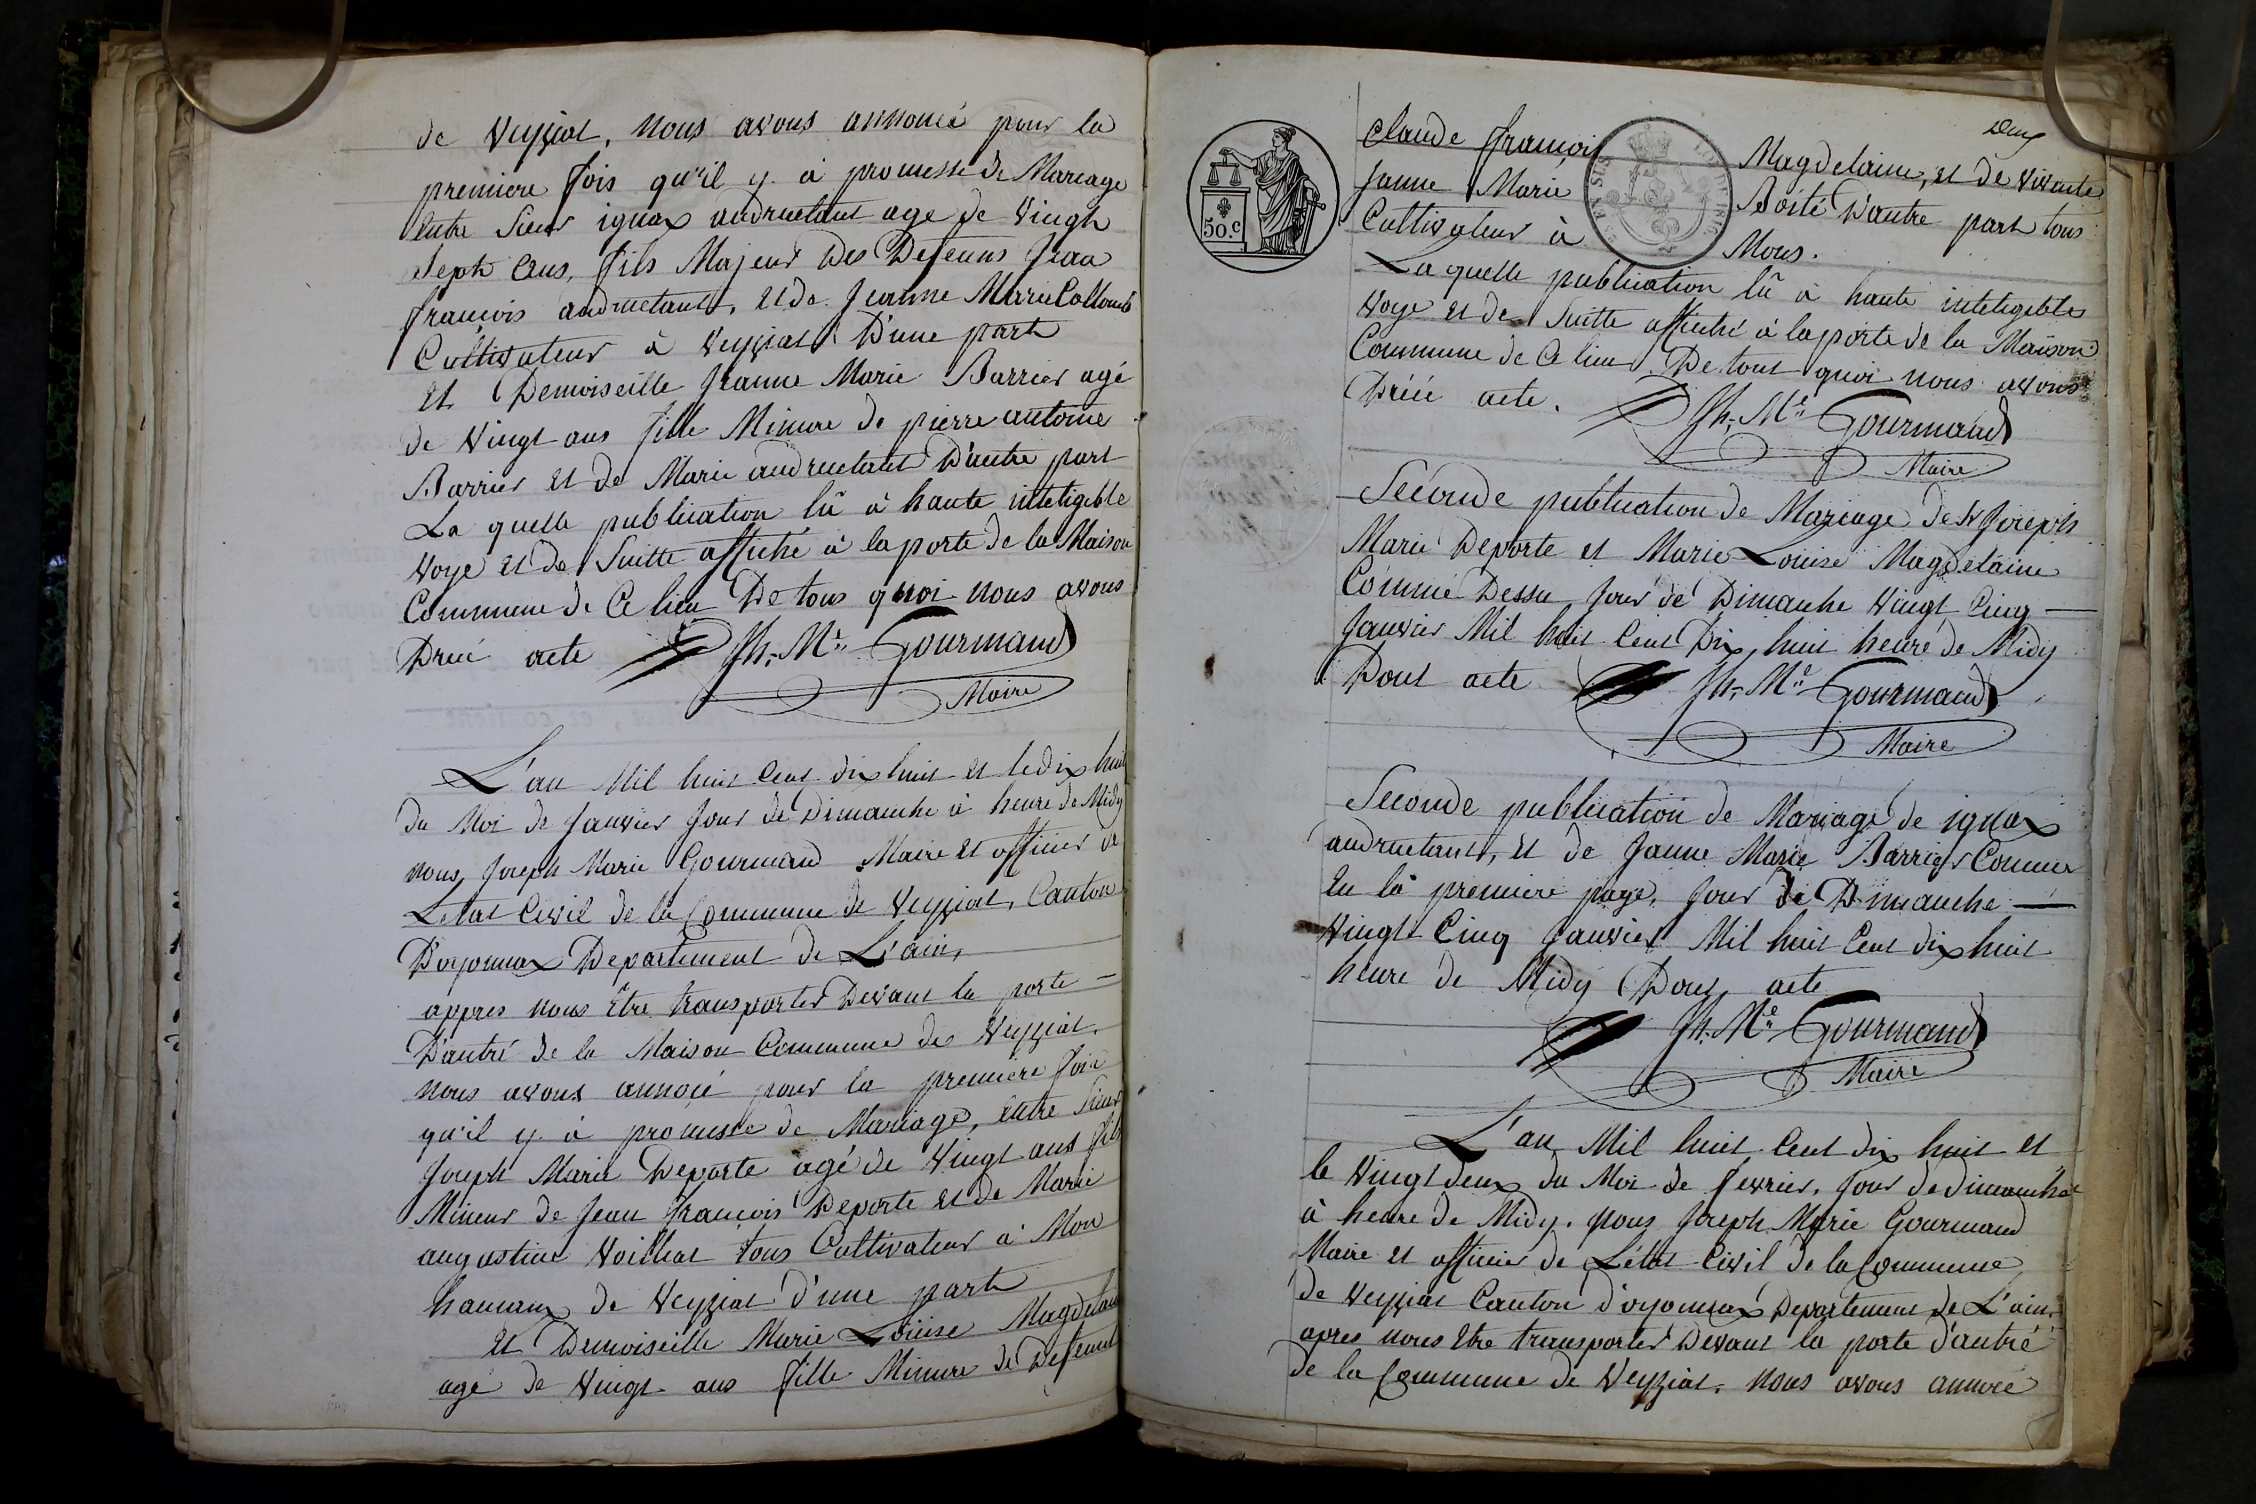 de Veyziat, nous avons annoncé pour la
premiere fois qu'il y a promesse de Mariage
Entre Sieur ignax andruetant age de Vingh
Sept ans, fils Majeur des Defeuns Jean
françois andruetant, et de Jeanne Marie Collomb
Cultivateur à Veyziat D'une part
Et Demoiseille Jeanne Marie Barrier agé
de Vingt ans fille Mineure de pierre antoine
Barrier et de Marie andruetant D'autre part
La quelle publication lû à haute inteligible
Voye et de Suitte affiché à la porte de la Maison
Commune de Ce lieu De tous quoi nous avons
Dréé acte Jh. Mie Gourmand
Maire
L'an Mil huit Cent dix huit et le dix huit
du Moi de Janvier Jour de Dimanche à heure de Midy
nous, Joseph Marie Gourmand Maire et officier de
L'état Civil de la Commune de Veyziat, Canton
D'oyonnax Departement de L'ain,
appres nous être transporter Devant la porte
D'autré de la Maison Commune de Veyziat.
nous avons annoié pour la premiere fois
qu'il y à promesse de Mariage, entre Sieur
Joseph Marie Deporte agé de Vingt ans fils
Mineur de Jean françois Deporte et de Marie
augustine Voilliat tous Cultivateur à Mon
hamaux de Veyziat D'une part
Et Demoiseille Marie Louise Magdelain
age de Vingt ans fille Mineure de Defeunt
Deux
50.c
Claude françois Magdelaine, et de Vivante
Janne Marie Boité D'autre part tous
Cultivateur à Mons.
La quelle publication lû à haute inteligibles
Voye et de Suitte affiché à la porte de la Maison
Commune de Ce lieu. De tout quoi nous avons
Dréé acte. Jh. Mie Gourmand
Maire
Seconde publication de Mariage de Sr Joseph
Marie Deporte et Marie Louise Magdelaine
Comme Dessu Jour de Dimanche Vingt Cinq
Janvier Mil huit Cent Dix huit heure de Midy
Dont acte Jh. Mie Gourmand
Maire
Seconde publication de Mariage de ignax
andruetant, et de Janne Marie Barrier Comme
En la premiere page, Jour de Dimanche
Vingt Cinq Janvier Mil huit Cent dix huit
heure de Midy Dont acte
Jh. Mie Gourmand
Maire
L'an Mil huit Cent dix huit et
le Vingt deux du Moi de fevrier, Jour de dimanche
à heure de Midy. Nous Joseph Marie Gourmand
Maire et officier de L'état Civil de la Commune
de Veyziat Canton d'oyonnax Departement de L'ain,
apres nous Etre transporter Devant la porte d'autré
de la Commune de Veyziat. nous avons annoié